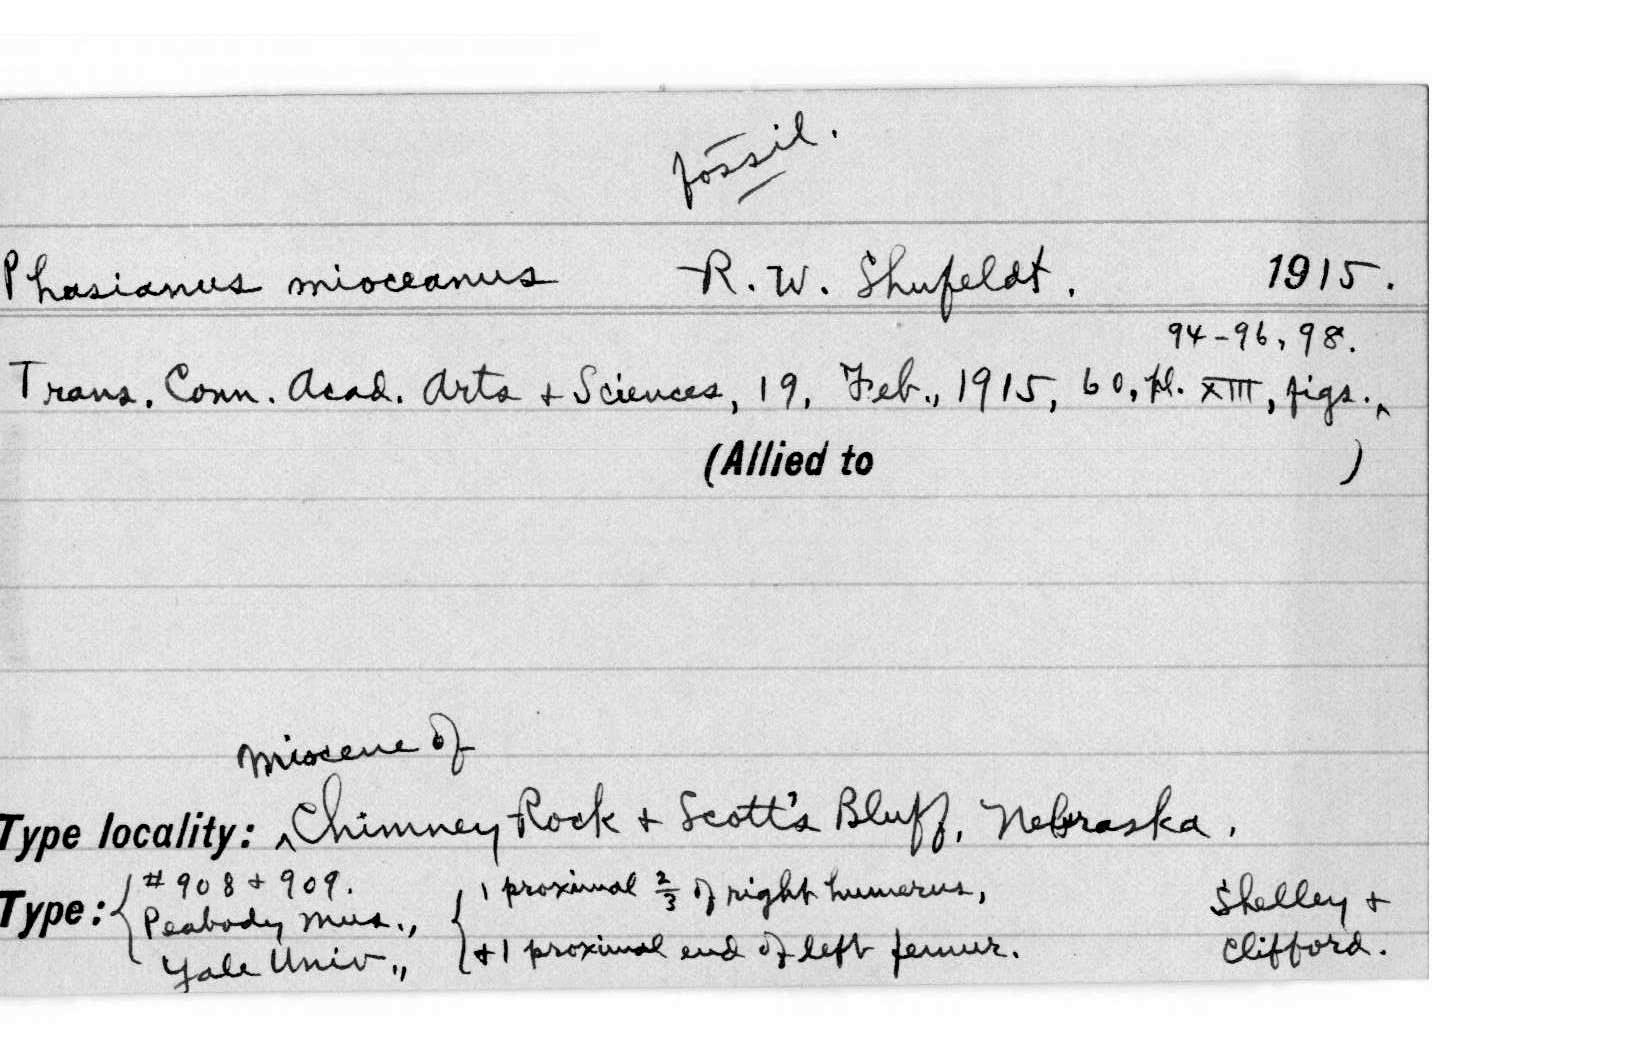 fossil.
Phasianus mioceanus R. W. Shufeldt. 1915.
94-96, 98.
Trans. Conn. Acad. Arts + Sciences, 19, Feb., 1915, 60, pl. XIII, figs.‸
(Allied to )
Miocene of
Type locality: ‸Chimney Rock + Scott's Bluff, Nebraska.
Type: # 908 + 909. 1 proximal 2/3 of right humerus, Shelley +
Peabody Mus., +1 proximal end of left femur. Clifford.
Yale Univ.,